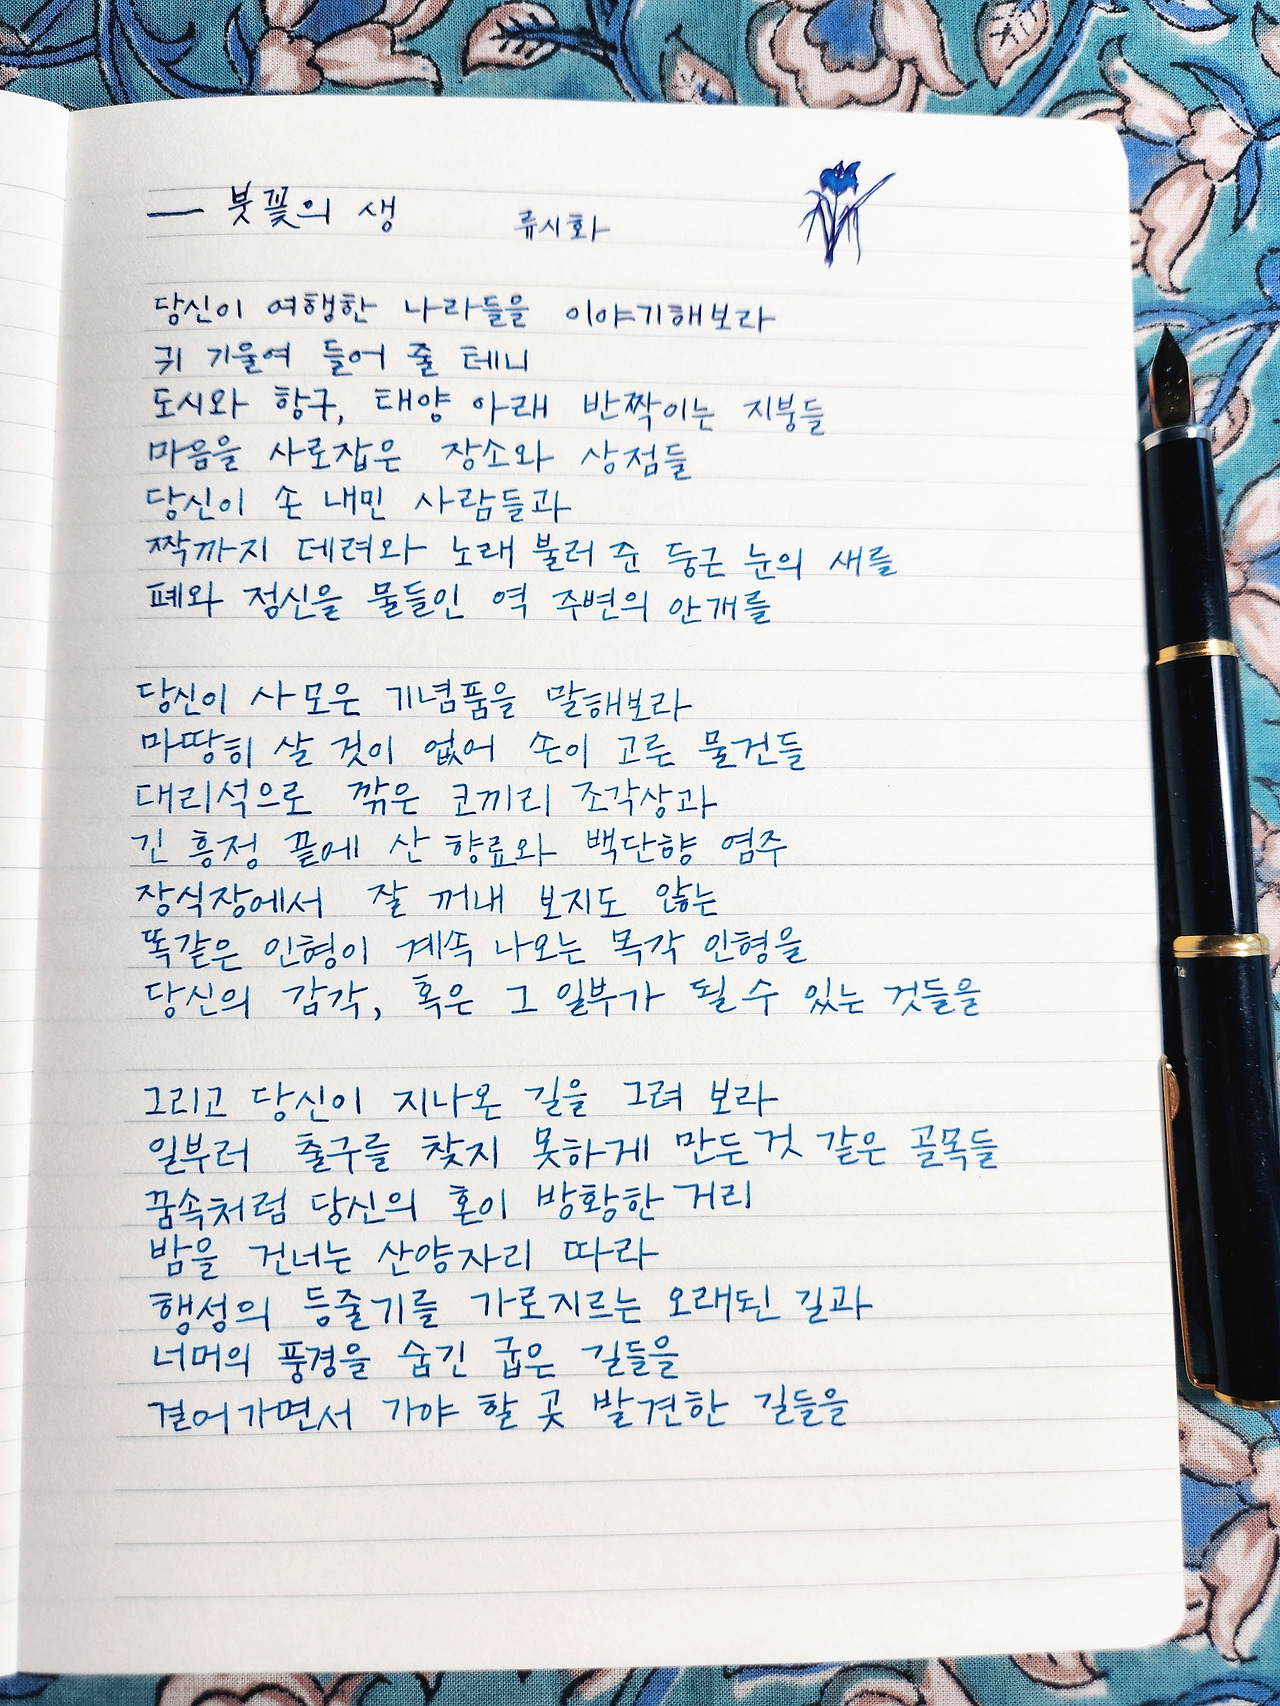 — 붓꽃의 생 류시화
당신이 여행한 나라들을 이야기해보라
귀 기울여 들어 줄 테니
도시와 항구, 태양 아래 반짝이는 지붕들
마음을 사로잡은 장소와 상점들
당신이 손 내민 사람들과
짝까지 데려와 노래 불러 준 둥근 눈의 새를
폐와 정신을 물들인 역 주변의 안개를
당신이 사 모은 기념품을 말해보라
마땅히 살 것이 없어 손이 고른 물건들
대리석으로 깎은 코끼리 조각상과
긴 흥정 끝에 산 향료와 백단향 염주
장식장에서 잘 꺼내 보지도 않는
똑같은 인형이 계속 나오는 목각 인형을
당신의 감각, 혹은 그 일부가 될 수 있는 것들을
그리고 당신이 지나온 길을 그려 보라
일부러 출구를 찾지 못하게 만든 것 같은 골목들
꿈속처럼 당신의 혼이 방황한 거리
밤을 건너는 산양자리 따라
행성의 등줄기를 가로지르는 오래된 길과
너머의 풍경을 숨긴 굽은 길들을
걸어가면서 가야 할 곳 발견한 길들을